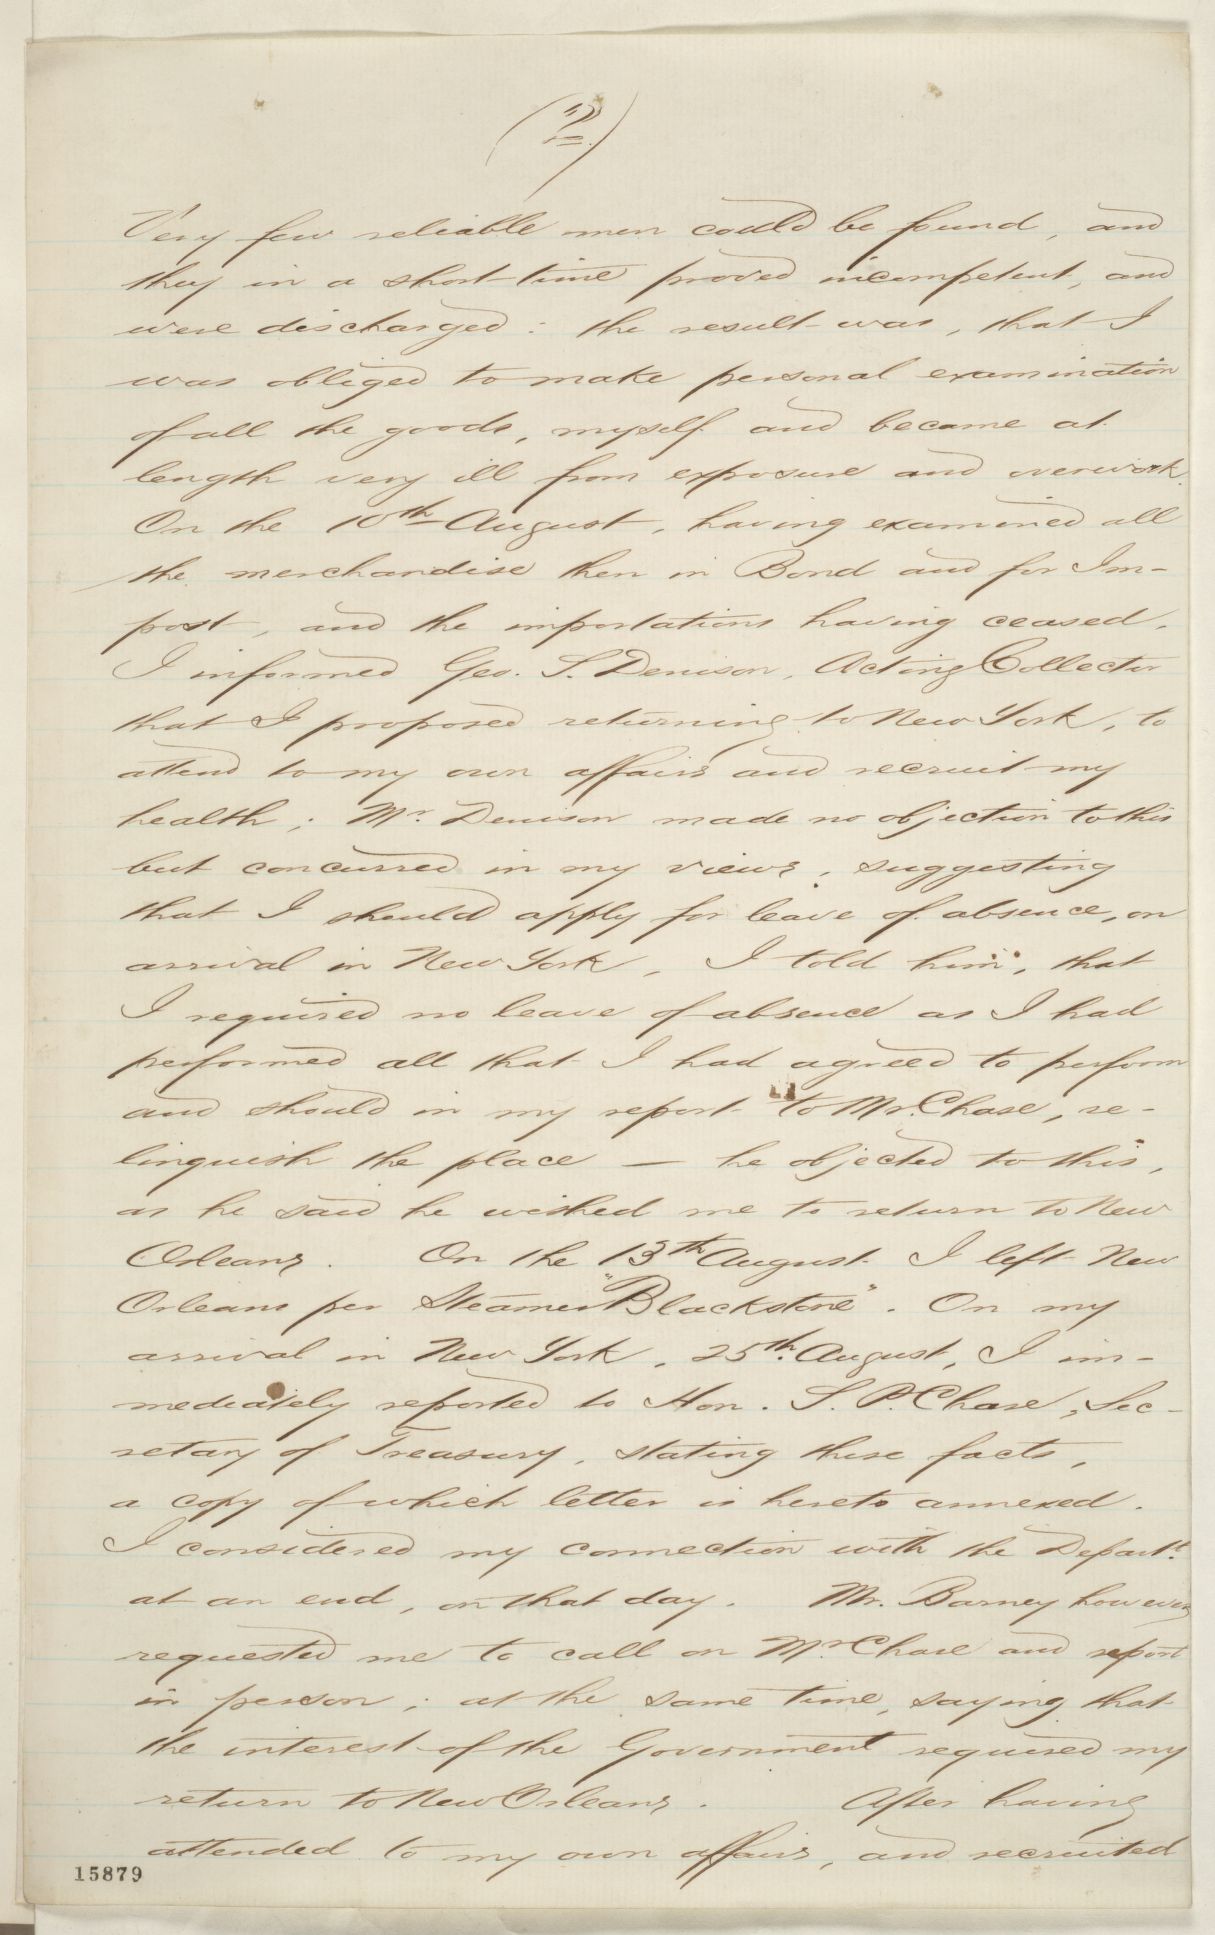 (2.)
Very few reliable men could be found, and
they in a short time proved incompetent, and
were discharged: the result was, that I
was obliged to make personal examination
of all the goods, myself and became at
length very ill from exposure and overwork.
On the 10th August, having examined all
the merchandise then in Bond and for Im-
post, and the importations having ceased,
I informed Geo. S. Denison, Acting Collector
that I proposed returning to New York, to
attend to my own affairs and recruit my
health; Mr. Denison made no objection to this
but concurred in my views, suggesting
that I should apply for leave of absence, on
arrival in New York, I told him, that
I required no leave of absence as I had
performed all that I had agreed to perform
and should in my report to Mr. Chase, re-
linquish the place — he objected to this,
as he said he wished me to return to New
Orleans. On the 13th August I left New
Orleans per Steamer "Blackstone". On my
arrival in New York, 25th. August, I im-
mediately reported to Hon. S. P. Chase, Sec-
retary of Treasury, stating these facts,
a copy of which letter is hereto annexed.
I considered my connection with the Departt.
at an end, on that day. Mr. Barney however
requested me to call on Mr. Chase and report
in person; at the same time, saying that
the interest of the Government required my
return to New Orleans. After having
attended to my own affairs, and recruited
15879